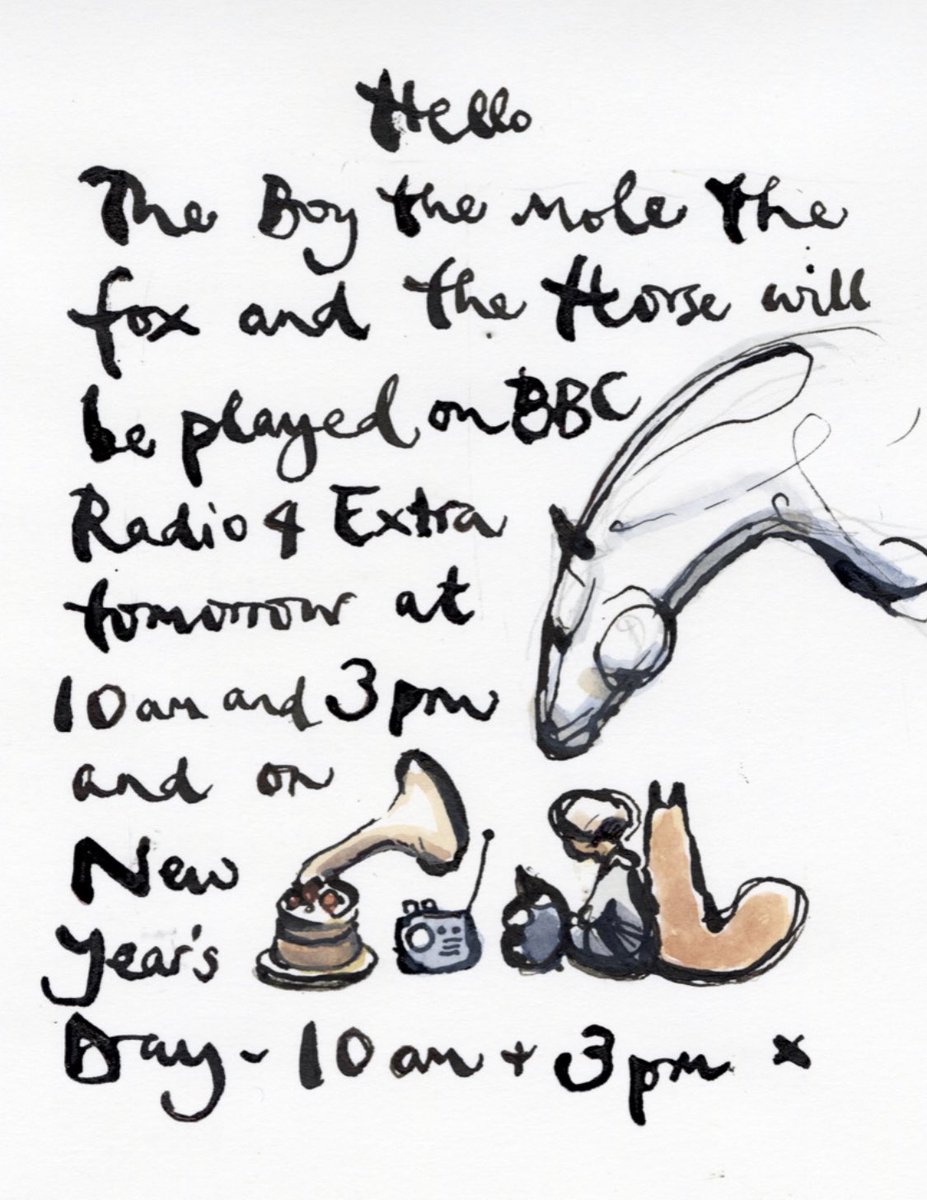 Hello
The Boy the Mole the
fox and the Horse will
be played on BBC
Radio 4 Extra
tomorrow at
10am and 3pm
and on
New
Year's
Day - 10am + 3pm x